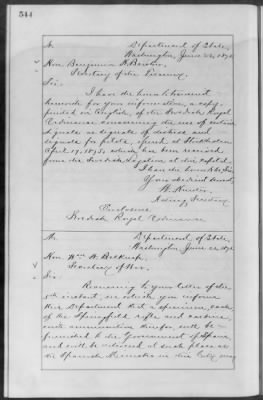 544
Department of State,
Washington, June 22, 1875
Hon. Benjamin H. Bristow,
Secretary of the Treasury.
Sir:
I have the honor to transmit
herewith for your information, a copy
in English, of the Swedish Royal
Ordinance concerning the use of certain
signals as signals of distress and
signals for pilots, given at Stockholm
April 19, 1875, which has been received
from the Swedish Legation at this Capital.
I have the honor to be, Sir,
Your obedient servant,
W. Hunter,
Acting Secretary
Enclosure:
Swedish Royal Ordinance
Department of State,
Washington, June 22, 1875
Hon. Wm. W. Belknap,
Secretary of War.
Sir:
Referring to your letter of the
instant, in which you inform
this Department that a specimen, each,
of the Springfield rifle and carbine,
with ammunition therefor, will be
furnished to the Government of Spain,
and will be delivered at such place as
the Spanish Minister in this City may